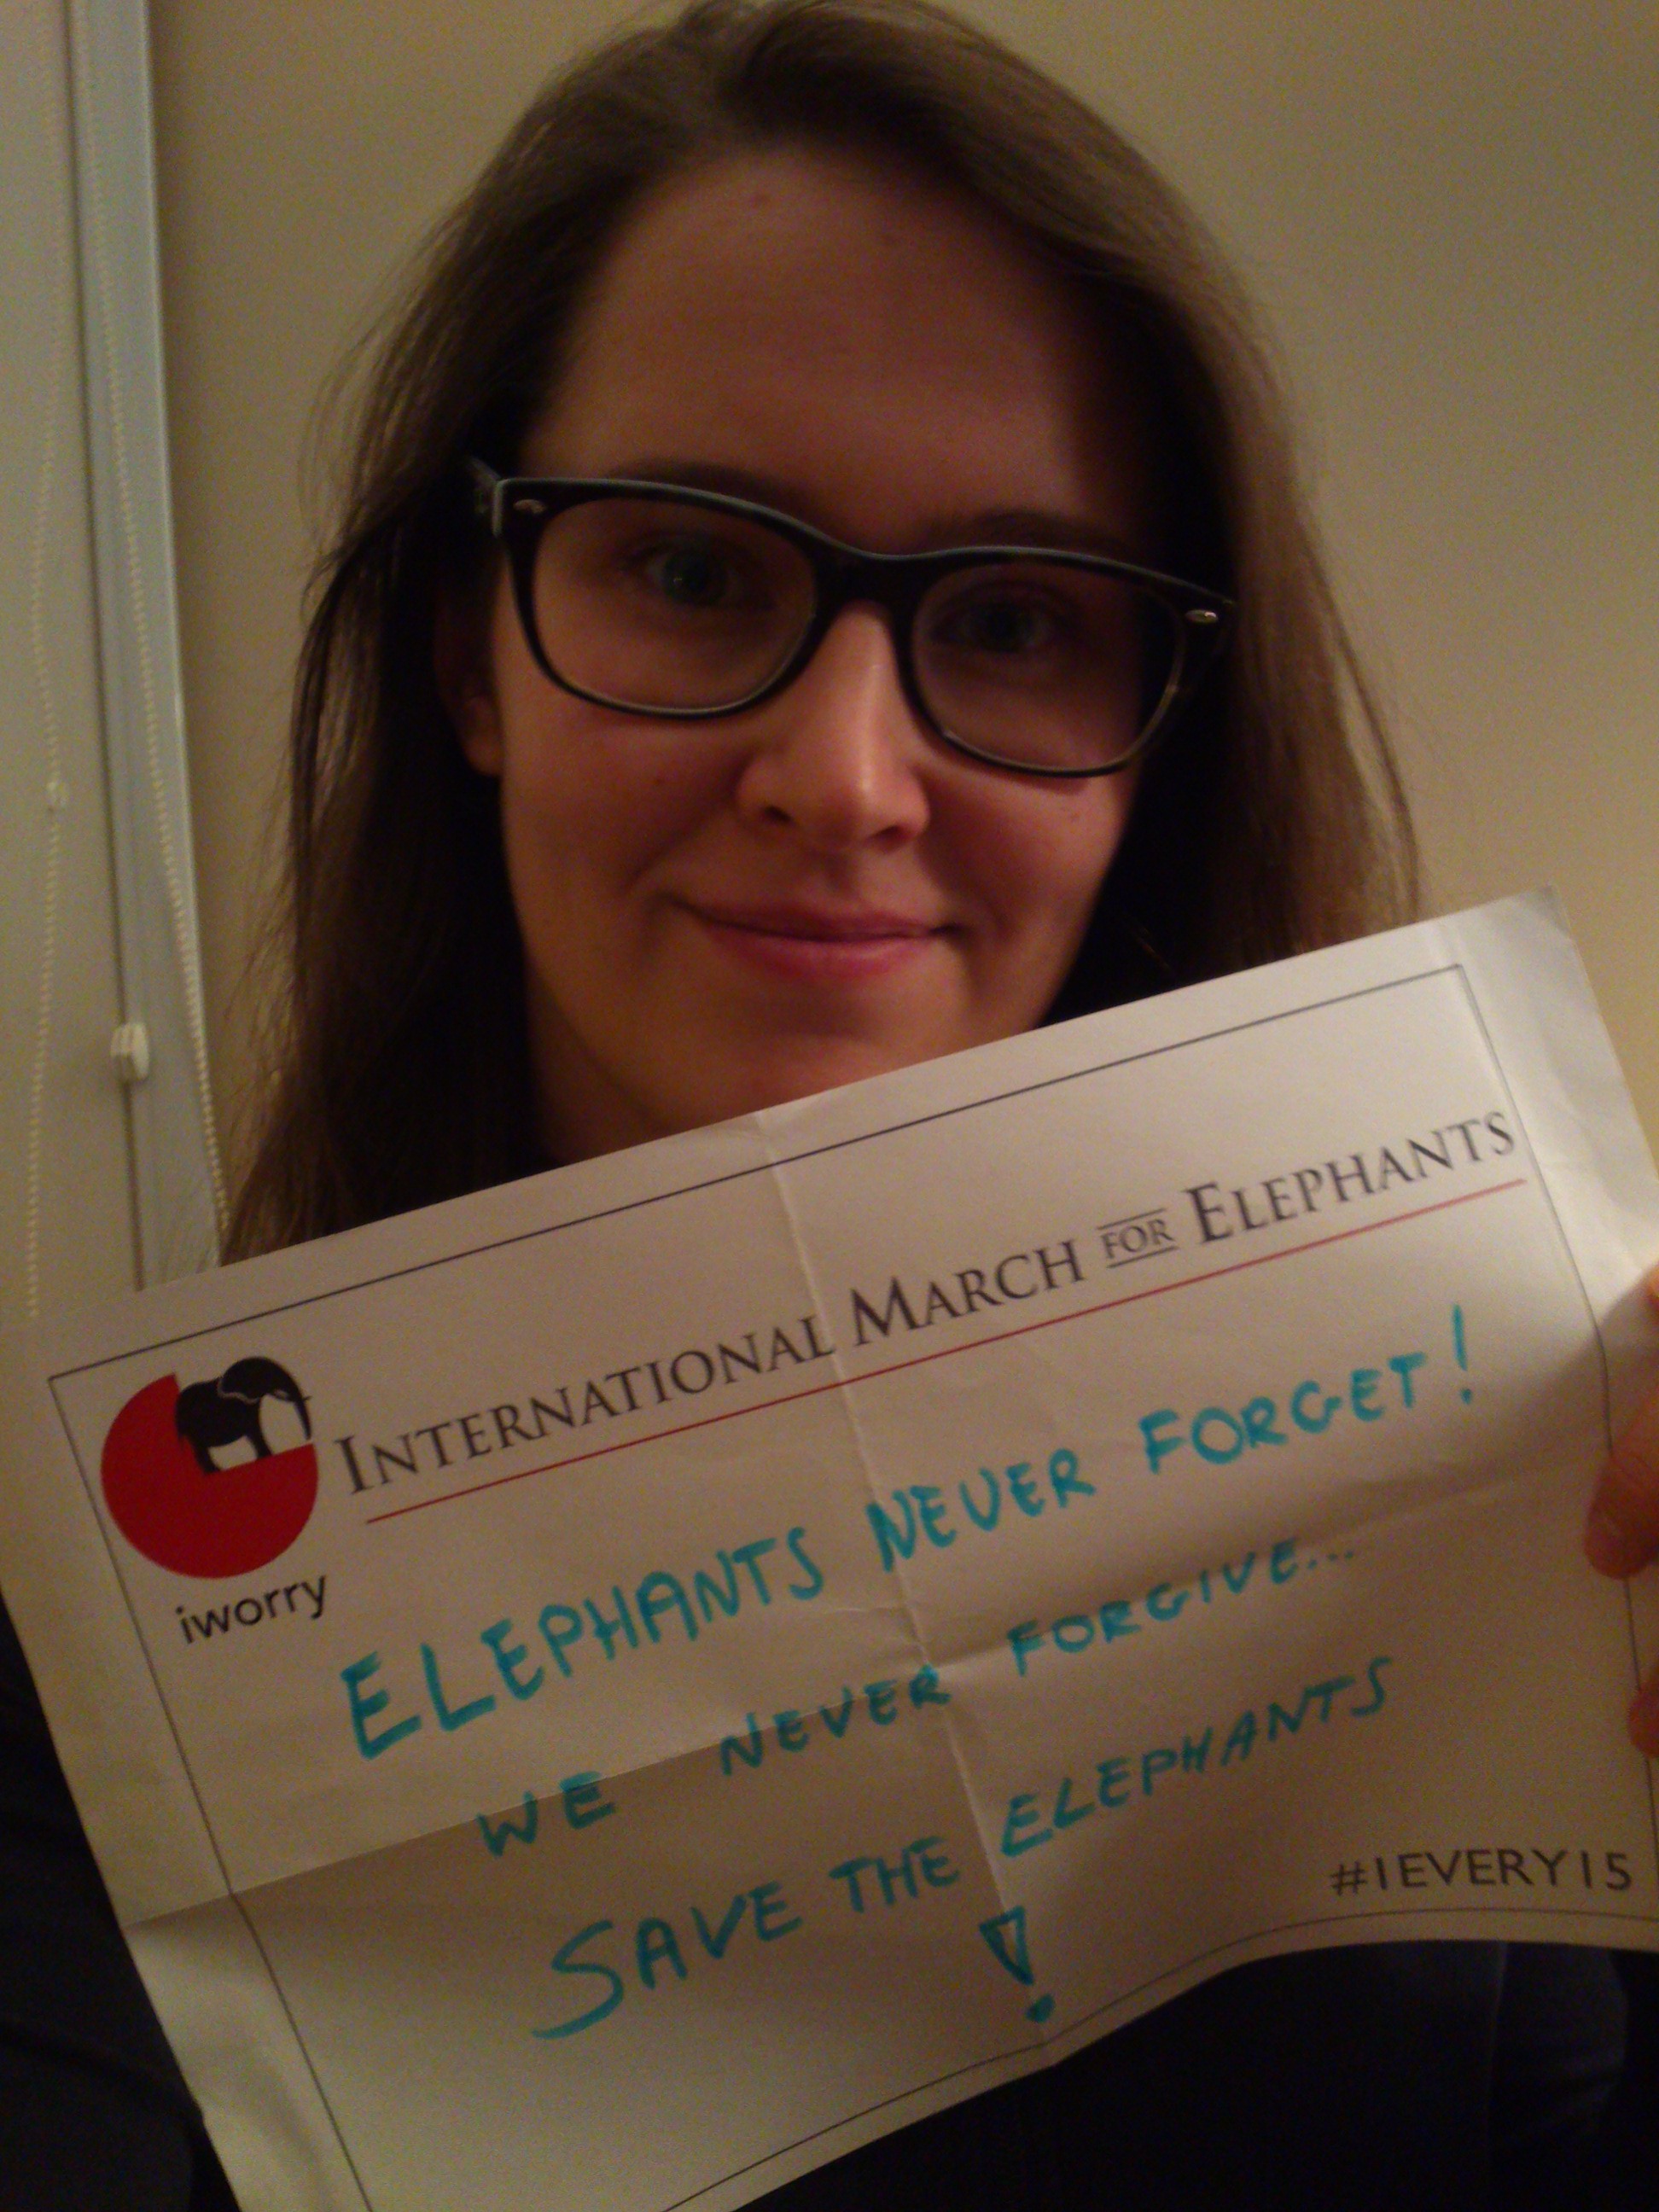 INTERNATIONAL MARCH FOR ELEPHANTS
iworry
ELEPHANTS NEVER FORGET!
WE NEVER FORGIVE...
SAVE THE ELEPHANTS
!
#1EVERY15